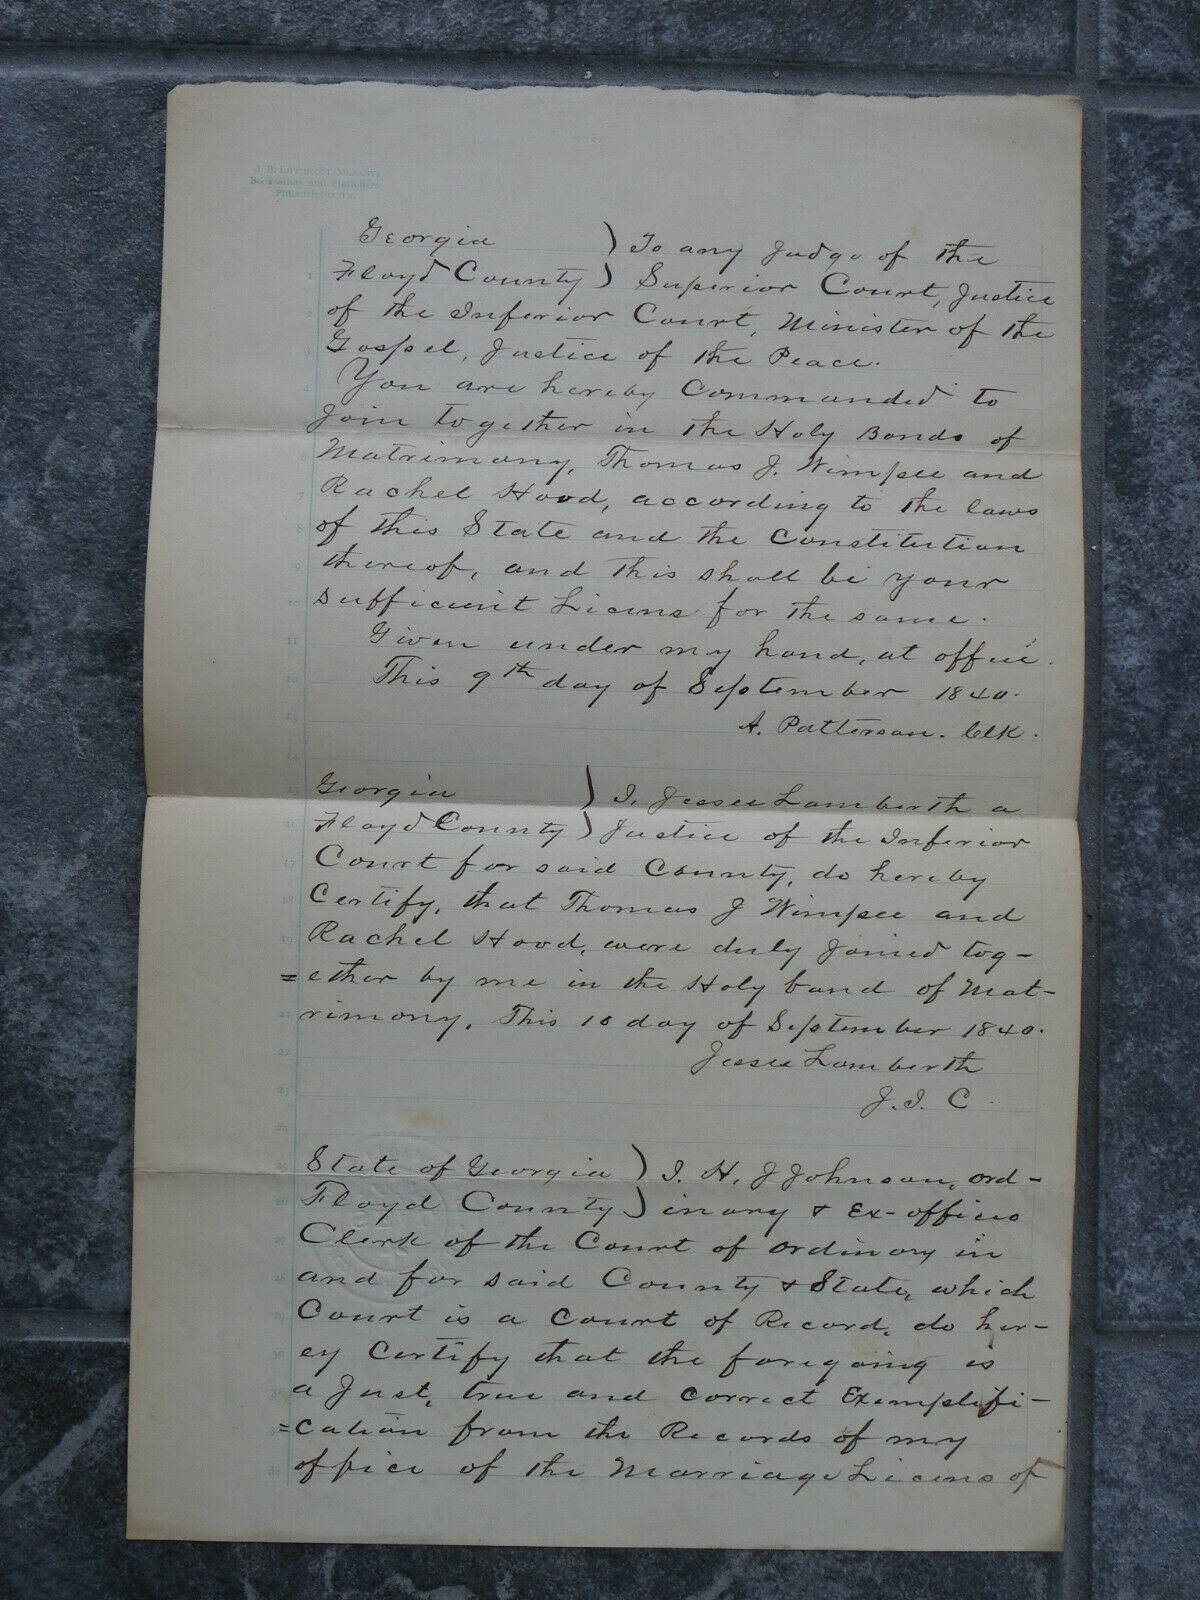 J. B. LIPPINCOTT COMPANY,
Booksellers and Stationers,
Philadelphia, Pa.
Georgia ) To any Judge of the
Floyd County ) Superior Court, Justice
of the Inferior Court, Minister of the
Gospel, Justice of the Peace.
You are hereby Commanded to
Join together in the Holy Bonds of
Matrimony, Thomas J. Wimpee and
Rachel Hood, according to the laws
of this State and the Constitution
thereof, and this shall be your
sufficient Licens for the same.
Given under my hand, at office.
This 9th day of September 1840.
A. Patterson. Clk.
Georgia ) I, Jesse Lamberth a
Floyd County ) Justice of the Inferior
Court for said County, do hereby
Certify, that Thomas J Wimpee and
Rachel Hood, were duly Joined tog-
=ether by me in the Holy band of Mat-
rimony, This 10 day of September 1840.
Jesse Lamberth
J. I. C.
State of Georgia ) I. H. J Johnson, ord-
Floyd County ) inary & Ex-officio
Clerk of the Court of ordinary in
and for said County & State, which
Court is a Court of Record, do her-
ey Certify that the foregoing is
a Just, true and correct Exemplifi-
=cation from the Records of my
office of the Marriage Licens of